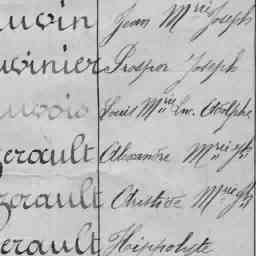 auvin Jean Mrie Joseph
uvinier Prosper Joseph
auvois Louis Mrie Adolphe
gerault Alexandre Mrie
gerault Aristide Mrie
gerault Hippolyte